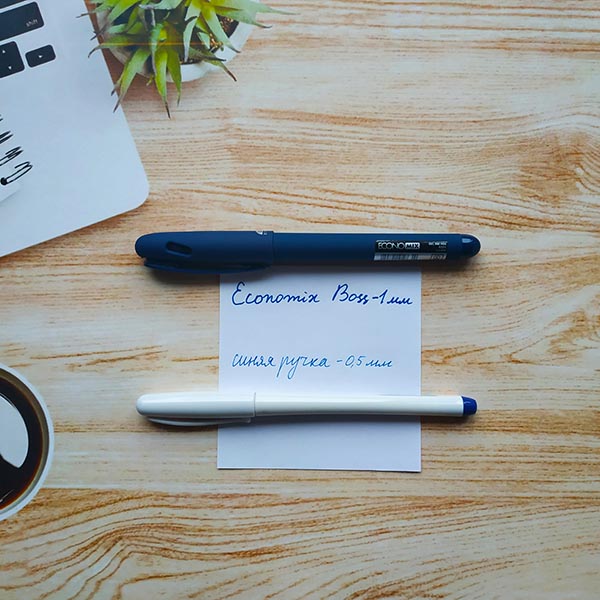 shift
ECONOMIX
Economix Boss-1мм
синяя ручка - 0,5 мм